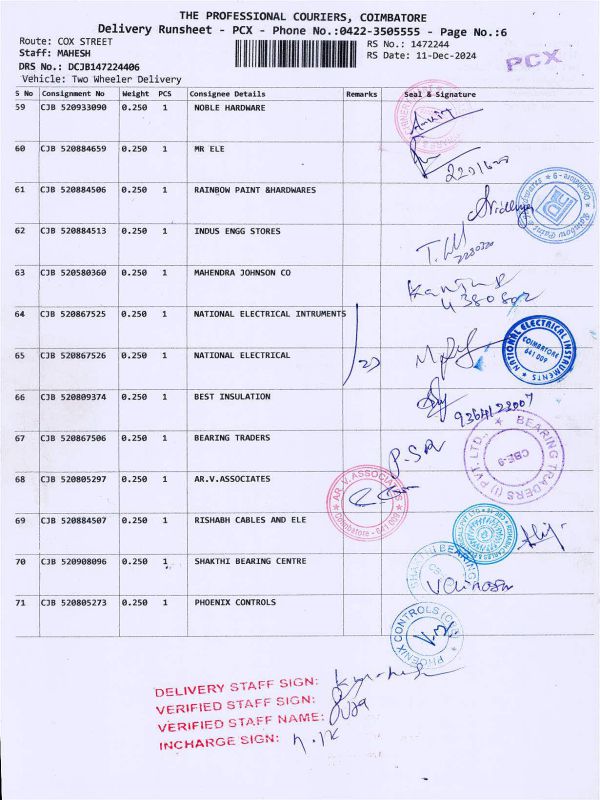 THE PROFESSIONAL COURIERS, COIMBATORE
Delivery Runsheet - PCX - Phone No.:0422-3505555 - Page No.:6
Route: COX STREET
Staff: MAHESH
DRS No.: DCJB147224406
Vehicle: Two Wheeler Delivery
RS No.: 1472244
RS Date: 11-Dec-2024
PCX
S No Consignment No Weight PCS Consignee Details Remarks Seal & Signature
59 CJB 520933090 0.250 1 NOBLE HARDWARE
60 CJB 520884659 0.250 1 MR ELE
61 CJB 520884506 0.250 1 RAINBOW PAINT &HARDWARES
62 CJB 520884513 0.250 1 INDUS ENGG STORES
63 CJB 520580360 0.250 1 MAHENDRA JOHNSON CO
64 CJB 520867525 0.250 1 NATIONAL ELECTRICAL INTRUMENTS
NATIONAL ELECTRICAL INSTRUMENTS
COIMBATORE
641 009
65 CJB 520867526 0.250 1 NATIONAL ELECTRICAL
66 CJB 520809374 0.250 1 BEST INSULATION
67 CJB 520867506 0.250 1 BEARING TRADERS
BEARING TRADERS (I) PVT. LTD.,
CBE-9
68 CJB 520805297 0.250 1 AR.V.ASSOCIATES
AR.V.ASSOCIATES
Coimbatore - 641 009
69 CJB 520884507 0.250 1 RISHABH CABLES AND ELE
70 CJB 520908096 0.250 1 SHAKTHI BEARING CENTRE
71 CJB 520805273 0.250 1 PHOENIX CONTROLS
PHOENIX CONTROLS
DELIVERY STAFF SIGN:
VERIFIED STAFF SIGN:
VERIFIED STAFF NAME:
INCHARGE SIGN: